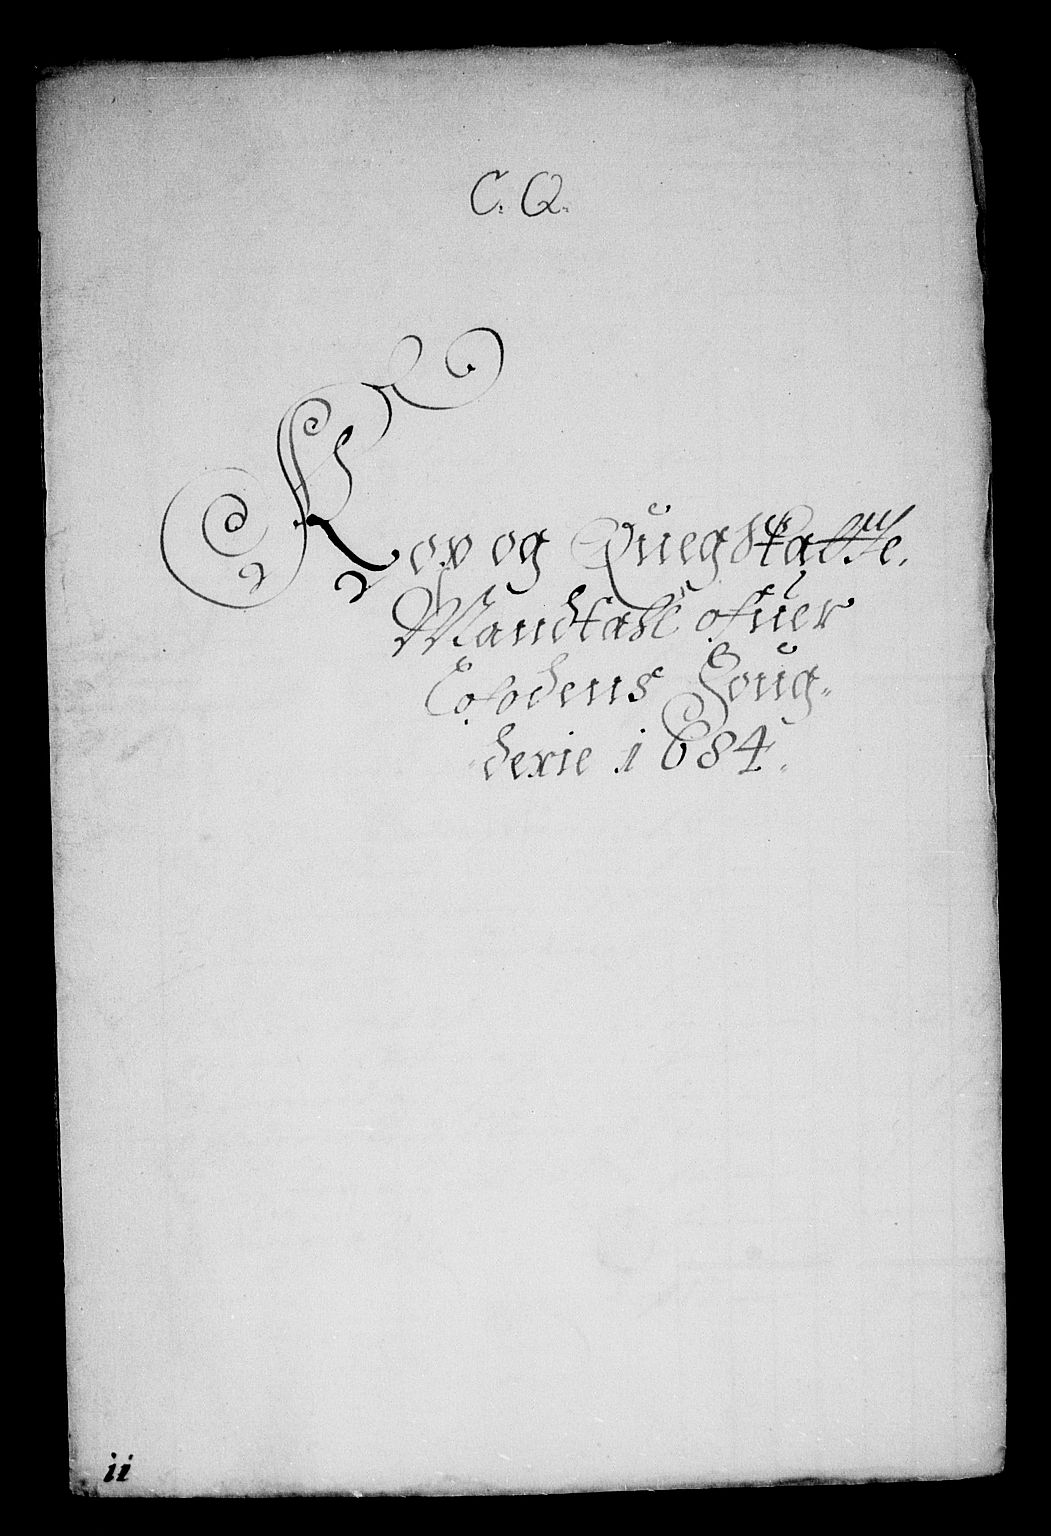 C. Q.
Kov og Quegskatte.
Mandtall ofuer
Lofodens Foug-
derie 1684.
ii